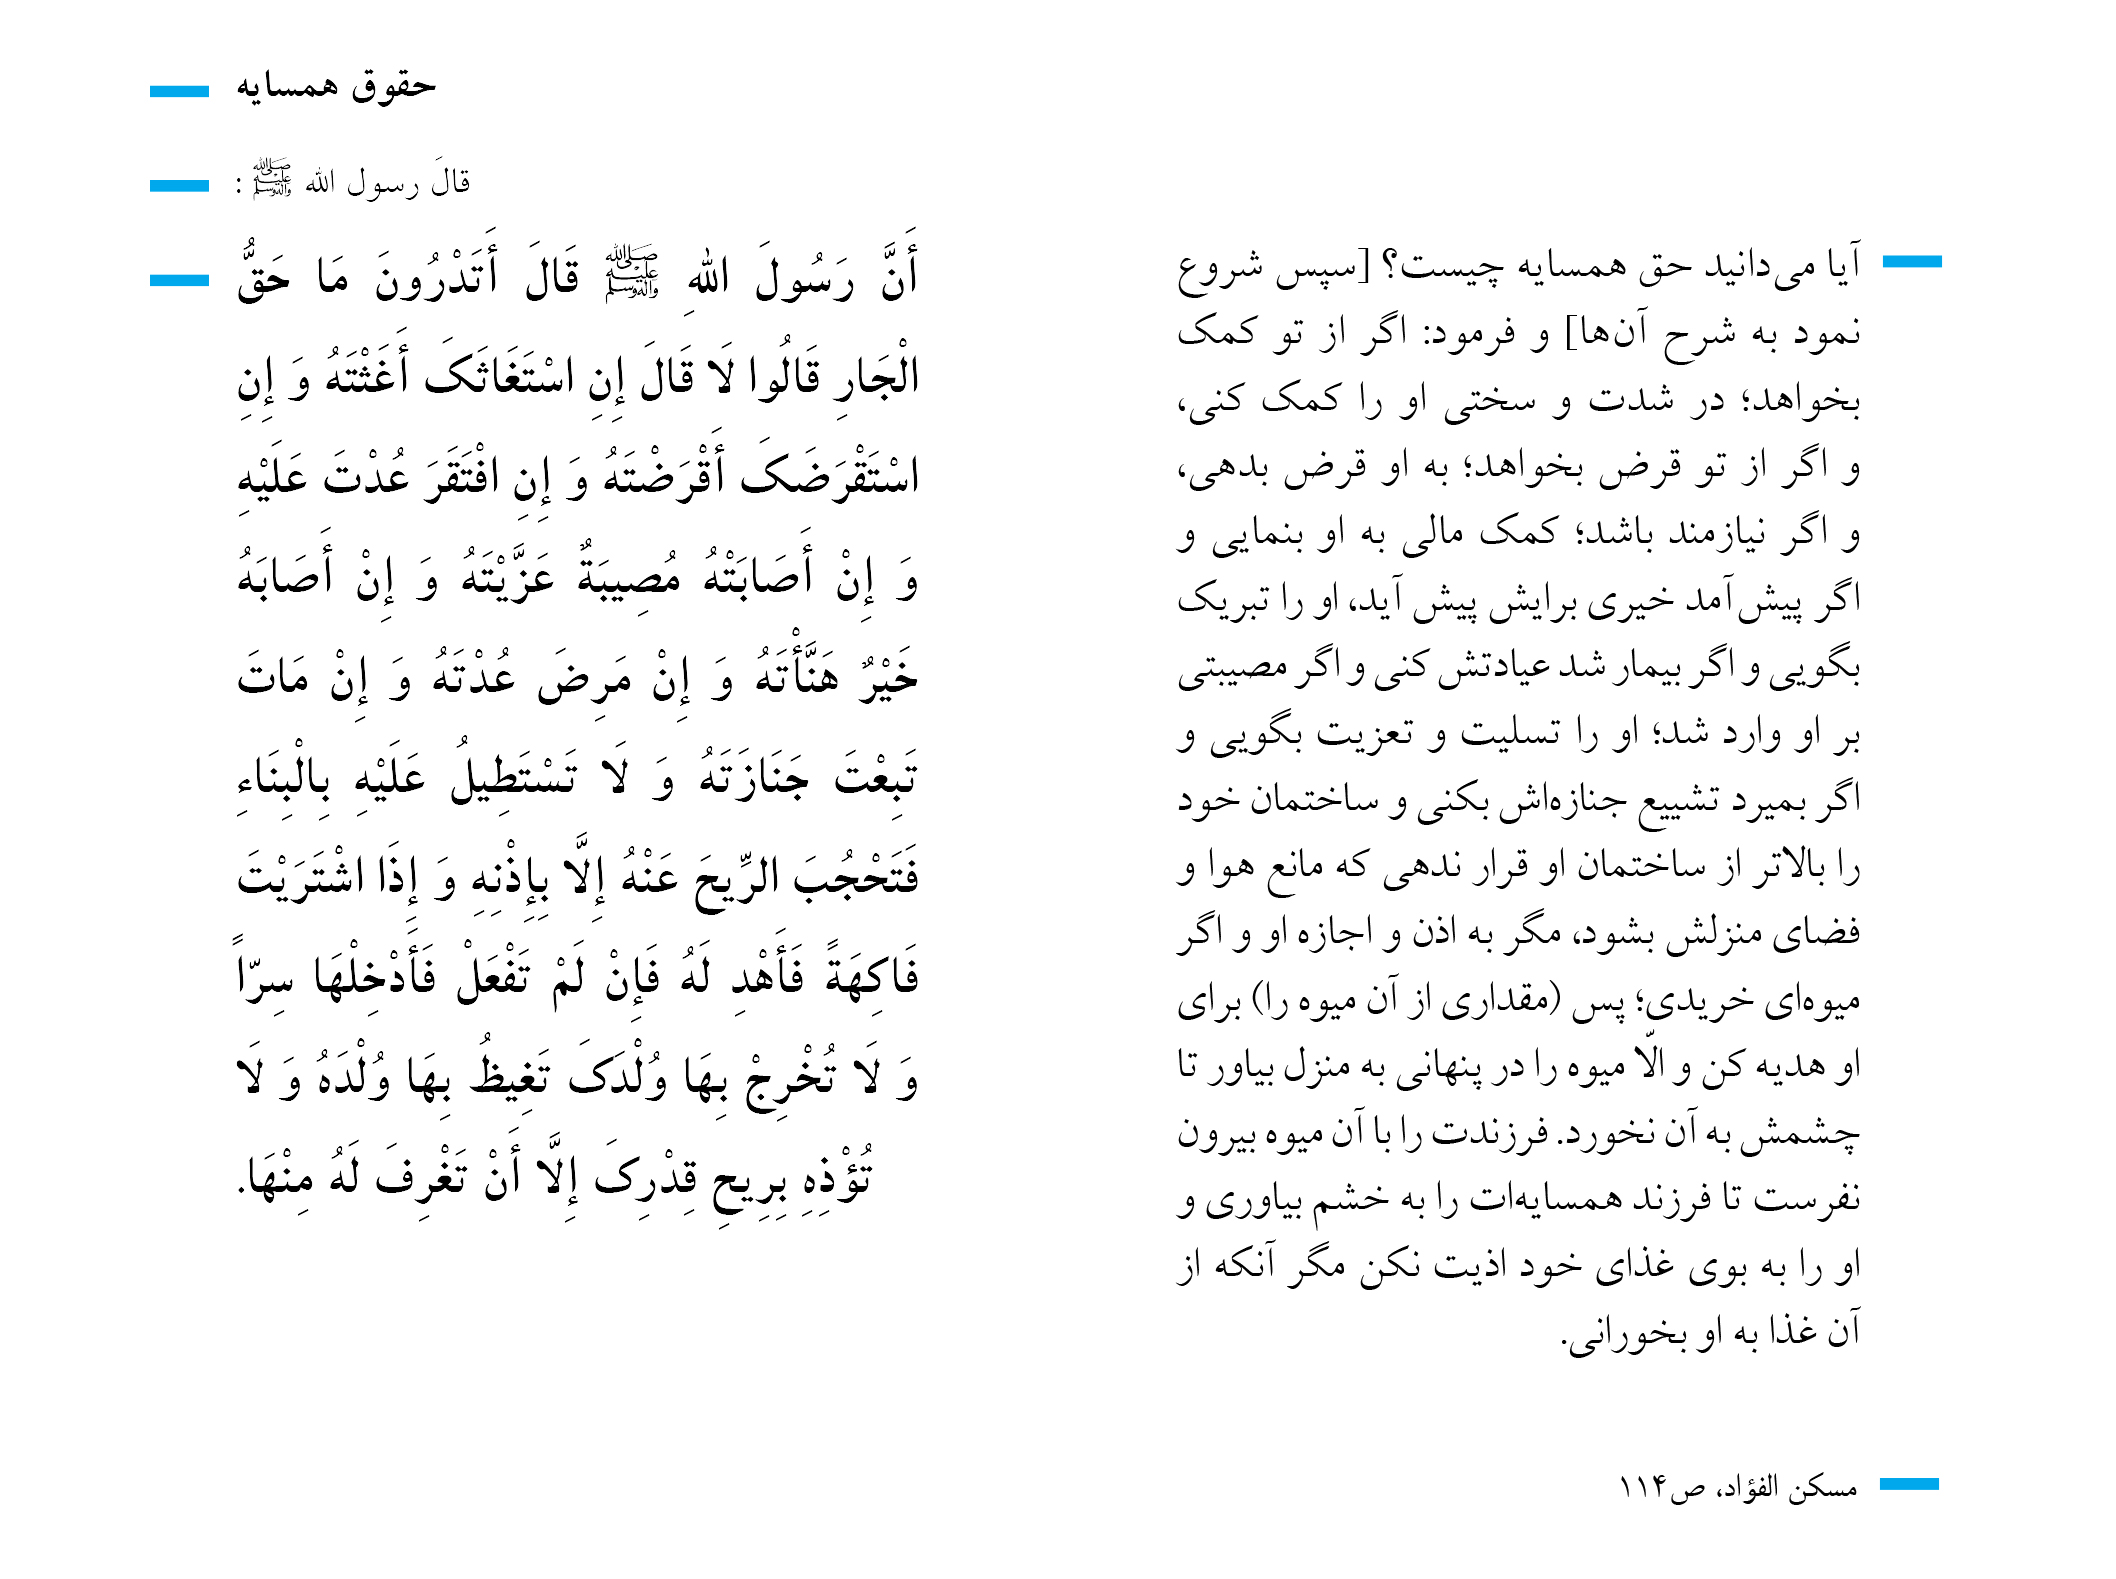 حقوق همسایه
قالَ رسول الله ﷺ :
أَنَّ رَسُولَ اللهِ ﷺ قَالَ أَتَدْرُونَ مَا حَقُّ
الْجَارِ قَالُوا لَا قَالَ إِنِ اسْتَغَاثَکَ أَغَثْتَهُ وَ إِنِ
اسْتَقْرَضَکَ أَقْرَضْتَهُ وَ إِنِ افْتَقَرَ عُدْتَ عَلَیْهِ
وَ إِنْ أَصَابَتْهُ مُصِیبَةٌ عَزَّیْتَهُ وَ إِنْ أَصَابَهُ
خَیْرٌ هَنَّأْتَهُ وَ إِنْ مَرِضَ عُدْتَهُ وَ إِنْ مَاتَ
تَبِعْتَ جَنَازَتَهُ وَ لَا تَسْتَطِیلُ عَلَیْهِ بِالْبِنَاءِ
فَتَحْجُبَ الرِّیحَ عَنْهُ إِلَّا بِإِذْنِهِ وَ إِذَا اشْتَرَیْتَ
فَاکِهَةً فَأَهْدِ لَهُ فَإِنْ لَمْ تَفْعَلْ فَأَدْخِلْهَا سِرّاً
وَ لَا تُخْرِجْ بِهَا وُلْدَکَ تَغِیظُ بِهَا وُلْدَهُ وَ لَا
تُؤْذِهِ بِرِیحِ قِدْرِکَ إِلَّا أَنْ تَغْرِفَ لَهُ مِنْهَا.
آیا می‌دانید حق همسایه چیست؟ [سپس شروع
نمود به شرح آن‌ها] و فرمود: اگر از تو کمک
بخواهد؛ در شدت و سختی او را کمک کنی،
و اگر از تو قرض بخواهد؛ به او قرض بدهی،
و اگر نیازمند باشد؛ کمک مالی به او بنمایی و
اگر پیش‌آمد خیری برایش پیش آید، او را تبریک
بگویی و اگر بیمار شد عیادتش کنی و اگر مصیبتی
بر او وارد شد؛ او را تسلیت و تعزیت بگویی و
اگر بمیرد تشییع جنازه‌اش بکنی و ساختمان خود
را بالاتر از ساختمان او قرار ندهی که مانع هوا و
فضای منزلش بشود، مگر به اذن و اجازه او و اگر
میوه‌ای خریدی؛ پس (مقداری از آن میوه را) برای
او هدیه کن و الّا میوه را در پنهانی به منزل بیاور تا
چشمش به آن نخورد. فرزندت را با آن میوه بیرون
نفرست تا فرزند همسایه‌ات را به خشم بیاوری و
او را به بوی غذای خود اذیت نکن مگر آنکه از
آن غذا به او بخورانی.
مسکن الفؤاد، ص۱۱۴